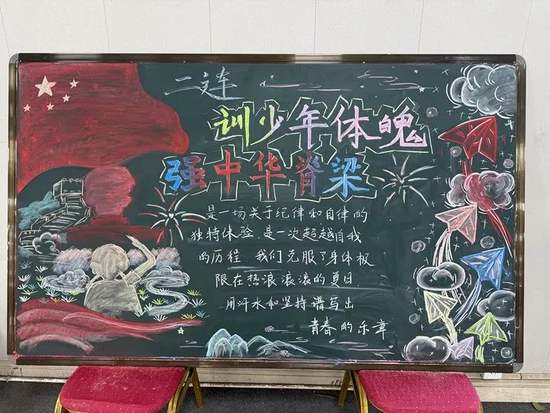 二连
训少年体魄
强中华脊梁
是一场关于纪律和自律的
独特体验 是一次超越自我
的历程 我们克服了身体极
限在热浪滚滚的夏日
用汗水和坚持谱写出
青春的乐章